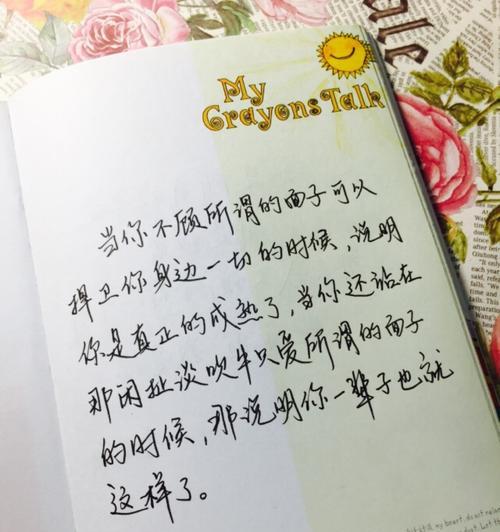 My
Crayons Talk
当你不顾所谓的面子可以
捍卫你身边一切的时候，说明
你是真正的成熟了，当你还站在
那闲扯淡吹牛只爱所谓的面子
的时候，那说明你一辈子也就
这样了。